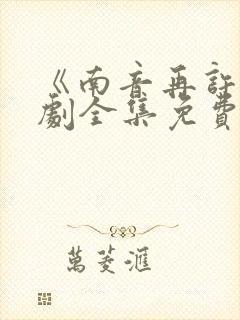 《南音再許
劇全集免費
萬菱滙